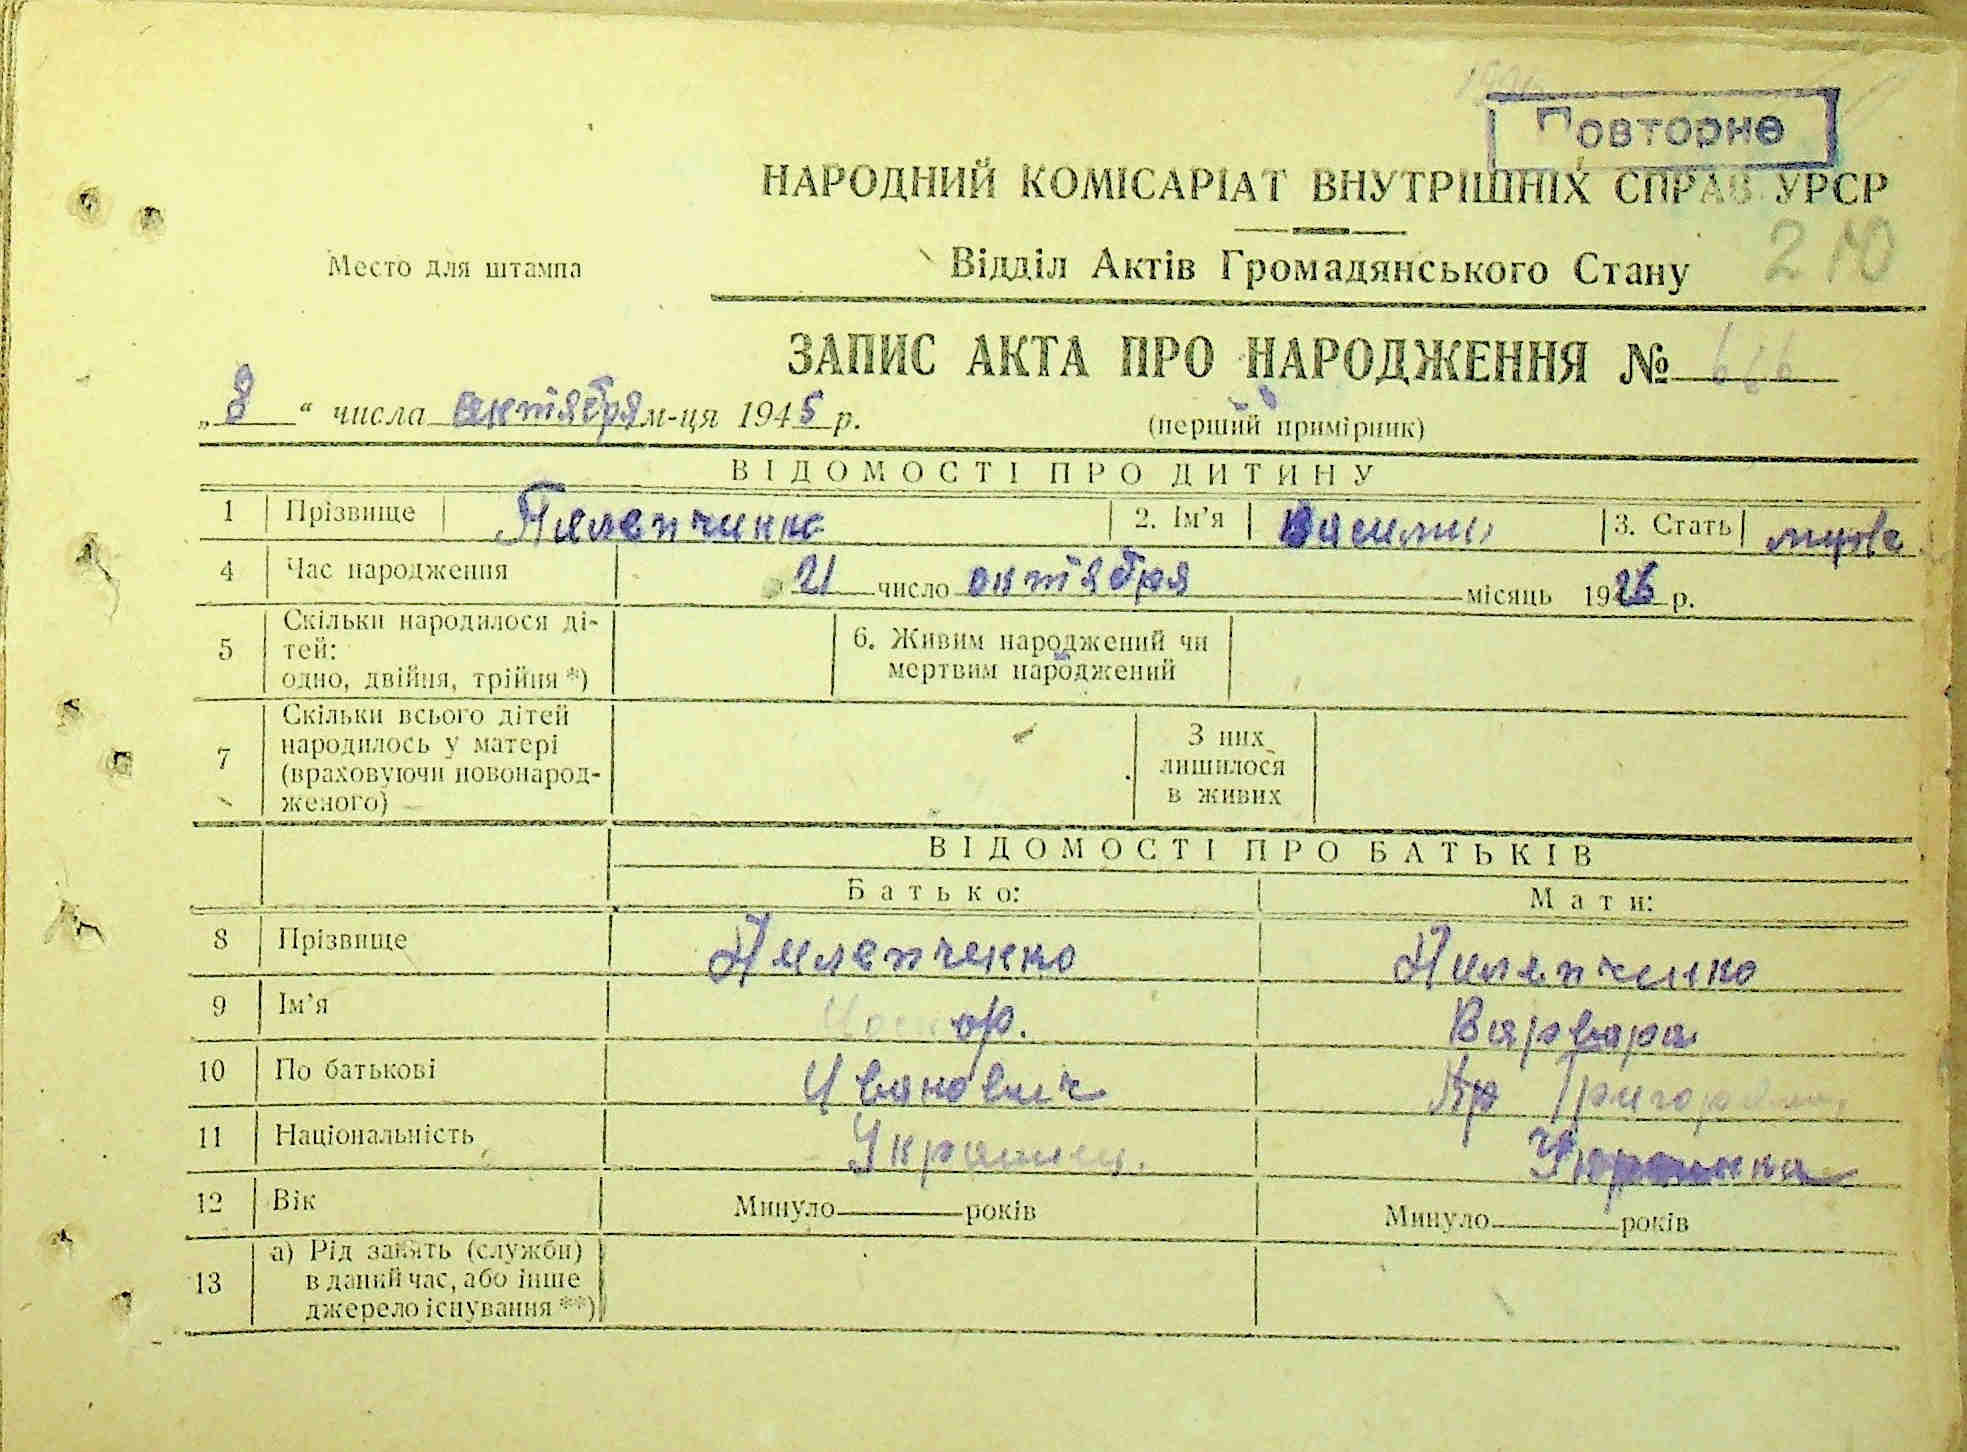 Повторно
НАРОДНИЙ КОМІСАРІАТ ВНУТРІШНІХ СПРАВ УРСР
Место для штампа
Відділ Актів Громадянського Стану
ЗАПИС АКТА ПРО НАРОДЖЕННЯ №
„8“ числа октября м-ця 1945 р.
(перший примірник)
ВІДОМОСТІ ПРО ДИТИНУ
1 Прізвище Пилепченко 2. Ім’я Василий 3. Стать
4 Час народження 21 число октября місяць 1926 р.
5 Скільки народилося ді-
тей:
одно, двійня, трійня *)
6. Живим народжений чи
мертвим народжений
7 Скільки всього дітей
народилось у матері
(враховуючи новонарод-
женого)
З них
лишилося
в живих
ВІДОМОСТІ ПРО БАТЬКІВ
Батько: Мати:
8 Прізвище Пилепченко Пилепченко
9 Ім’я Варвара
10 По батькові Иванович
11 Національність Украинец. Украинка
12 Вік Минуло років Минуло років
13 а) Рід занять (служби)
в даний час, або інше
джерело існування **)